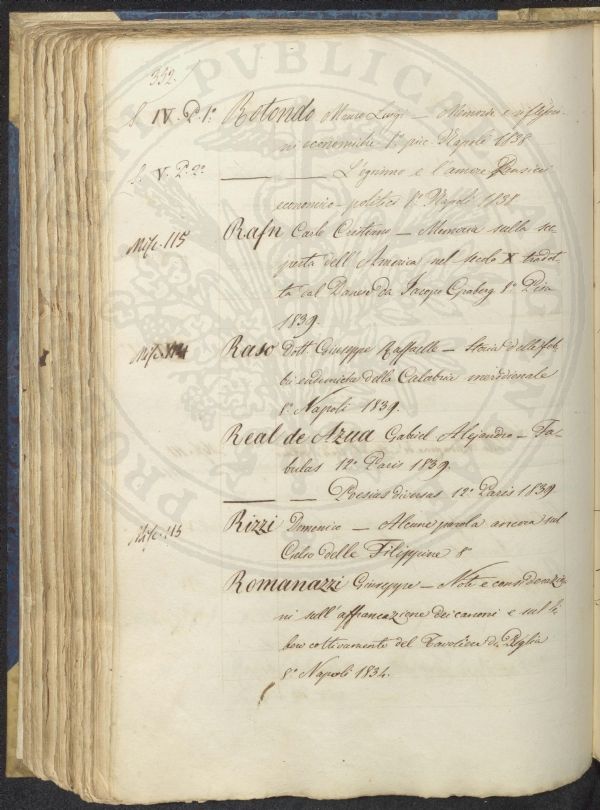 352.
S. IV. P. 1ª Rotondo Mauro Luigi – Memorie e riflessio-
ni economiche 8º Napoli 1838
S. V. P. 2ª — — L'ognuno e l'amore
economico-politico 8º Napoli 1838
Misc. 115 Rafn Carlo Cristiano – Memoria sulla sco-
perta dell'America nel secolo X tradot-
ta dal Danese da Jacopo Graberg 8º Pisa
1839.
Misc. 114 Raso Dott. Giuseppe Raffaelle – Storia delle feb-
bri endemiche della Calabria meridionale
8º Napoli 1839.
Real de Azua Gabriel Alejandro – Fa-
bulas 12º Paris 1839.
— — Poesias diversas 12º Paris 1839
Misc. 115 Rizzi Domenico – Alcune parola ancora sul
Calco delle Filippine 8º
Romanazzi Giuseppe – Note e considerazio-
ni sull'affrancazione dei canoni e sul li-
bero coltivamento del Tavoliere di Puglia
8º Napoli 1834.
PUBLICA